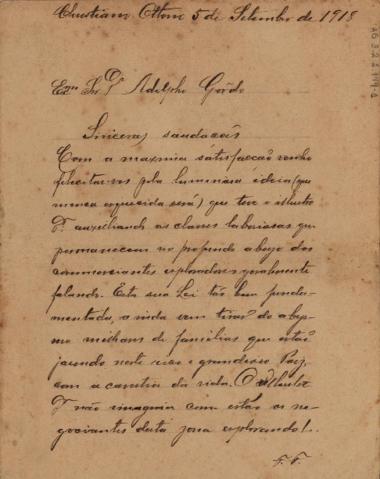 Christiano Ottoni 5 de Setembro de 1918
Exmo Snr Dr Adolpho Gordo
Sinceras saudacões
Com a maxmia satisfacção venho
felicitar-vos pela luminosa ideia (que
nunca esquecida será) que teve o illustre
Dr. auxiliando as classes laboriosas que
permanecem no profundo abysmo dos
commerciantes exploradores geralmente
falando. Esta sua Lei tão bem funda-
mentada, ainda vem tirar do abys-
mo milhares de familias que estão
jazendo neste rico e grandioso Paiz,
com a carestia da vida. O illustre
Dr não imagina como estão os ne-
gociantes desta zona explorando!.
F. F.